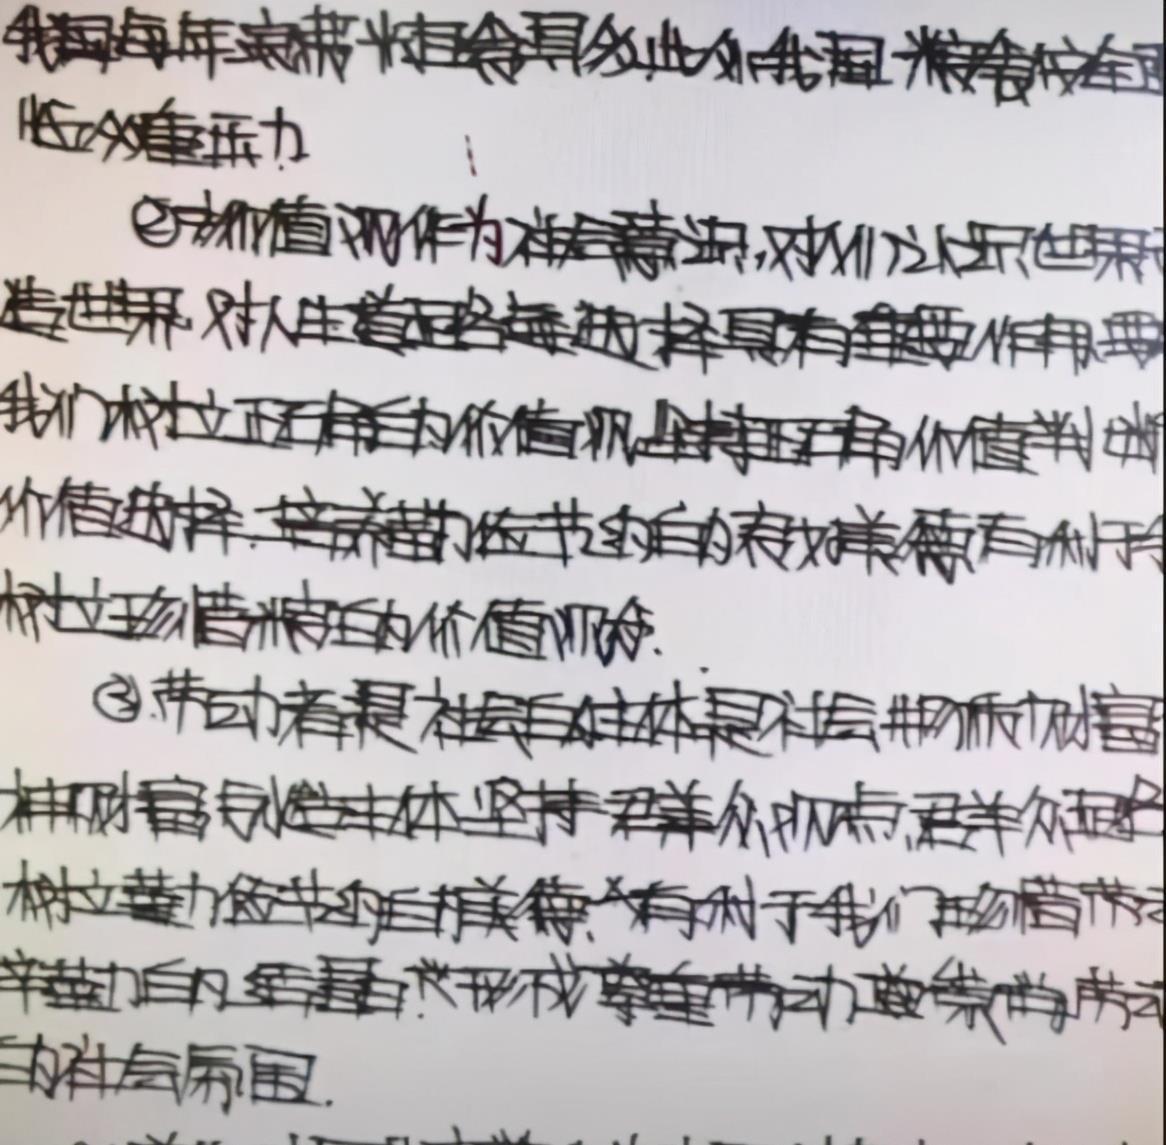 我国每年浪费粮食具多,此外我国粮食安全面
临双重压力
②价值观作为社会意识,对人们认识世界
造世界,对人生道路的选择具有重要作用,要
我们树立正确的价值观,坚持正确价值判断
价值选择.培养勤俭节约的良好美德有利于
树立珍惜粮食的价值观念.
③.劳动者是社会的主体,是社会物质财富
神财富创造主体,坚持群众观点,群众路
树立勤俭节约的美德.有利于我们珍惜劳动
辛勤的结晶,形成尊重劳动,崇尚劳动
的社会氛围.